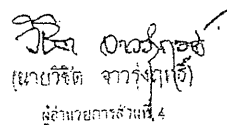 (นายวิชิต จาวรุ่งฤทธิ์)
ผู้อำนวยการส่วนที่ 4